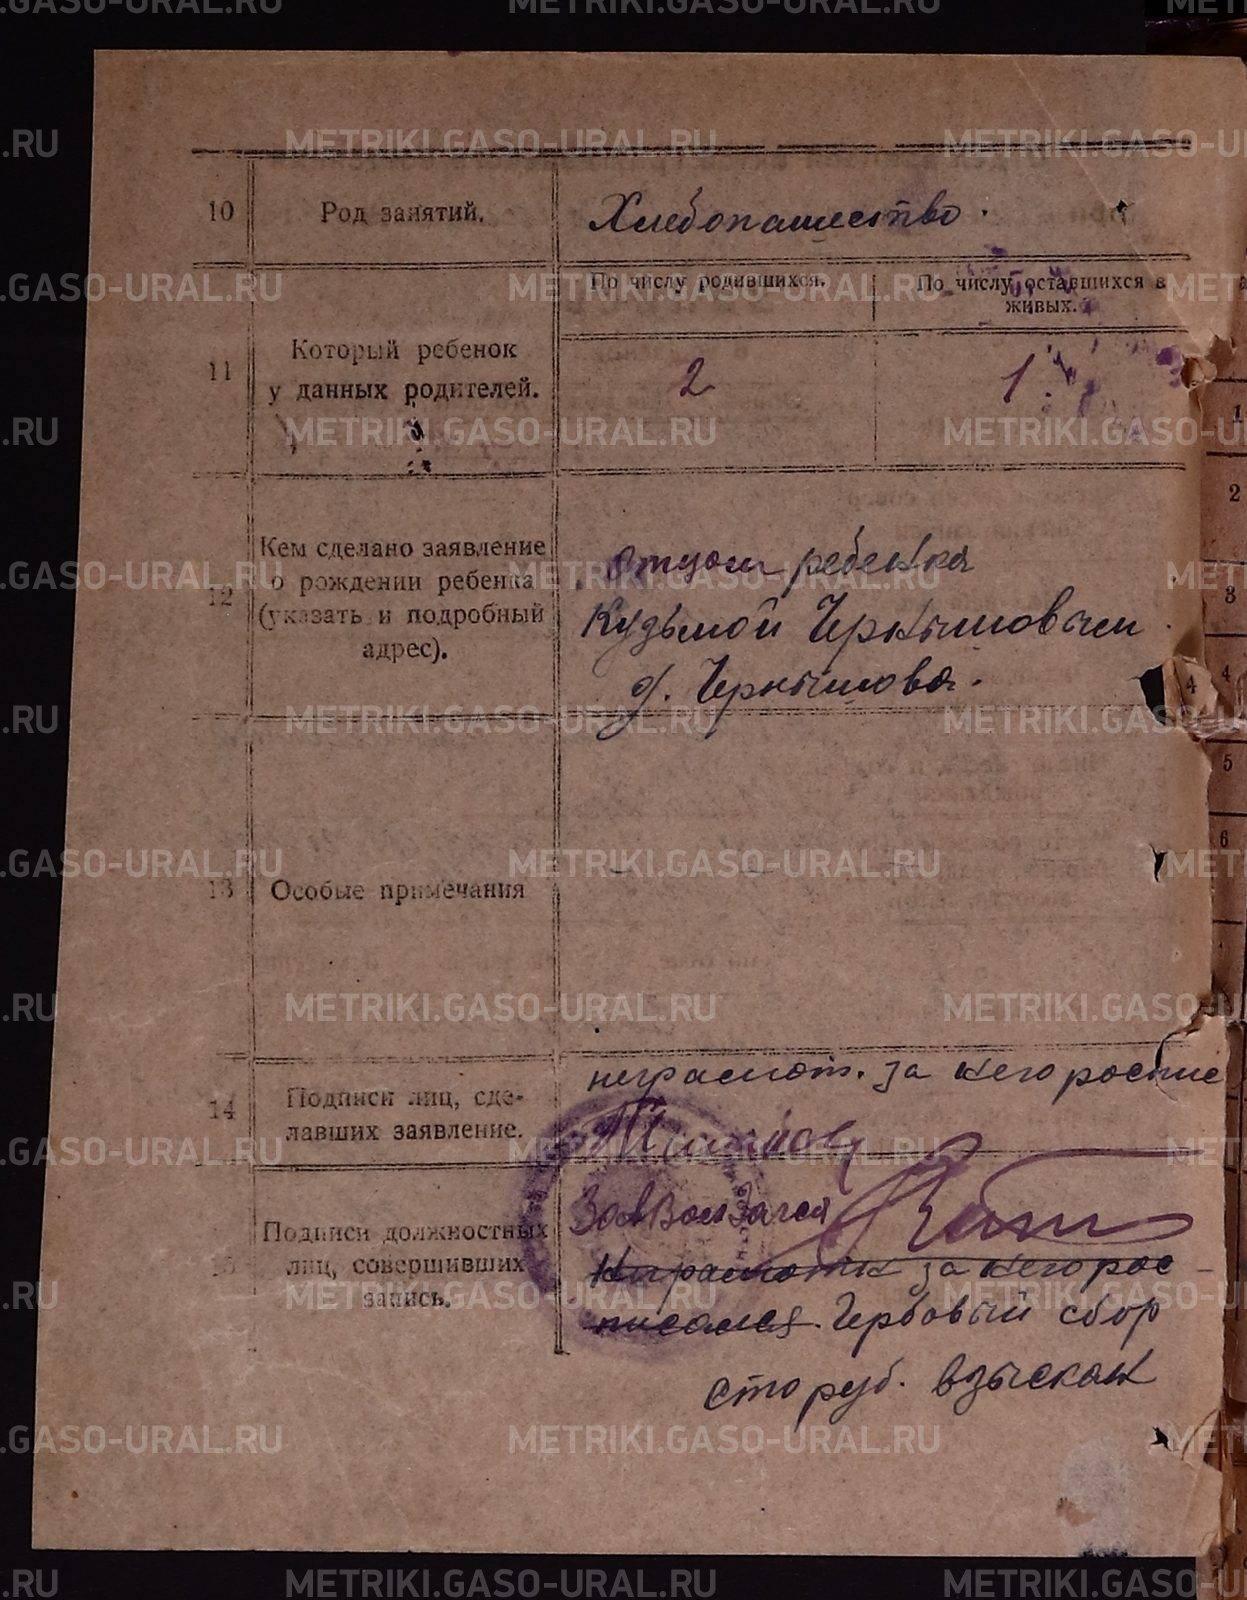 10 Род занятий. Хлебопашество.
По числу родившихся. По числу оставшихся в живых.
11 Который ребенок
у данных родителей. 2 1
12 Кем сделано заявление
о рождении ребенка
(указать и подробный
адрес).
отцом ребенка
Кузьмой Чернышовым
д. Чернышова.
13 Особые примечания
14 Подписи лиц, сде-
лавших заявление.
неграмот. за него роспис
15 Подписи должностных
лиц, совершивших
запись.
ЗавВолЗагса
Неграмотн за него рос-
писался. Гербовый сбор
сто руб. взыскан
1
2
3
4
4
5
6
METRIKI.GASO-URAL.RU